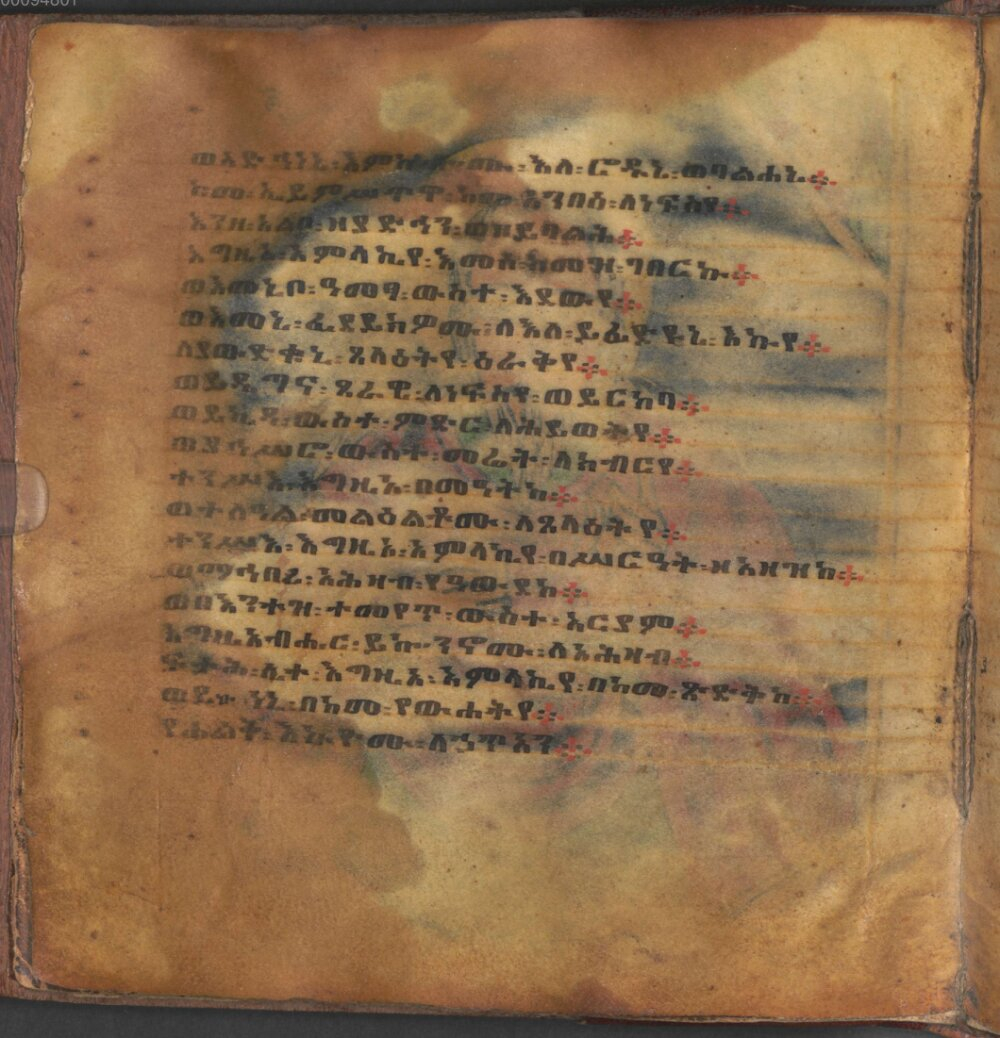 ወአድኅነኒ፡እምኵሎሙ፡እለ፡ሮዱኒ፡ወባልሐኒ።
ከመ፡ኢይምሥጥዋ፡ከመ፡አንበሳ፡ለነፍስየ።
እንዘ፡አልቦ፡ዘያድኅን፡ወዘይባልሕ።
እግዚኦ፡አምላኪየ፡እመሰ፡ከመዝ፡ገበርኩ።
ወእመኒቦ፡ዓመፃ፡ውስተ፡እደውየ።
ወእመኒ፡ፈደይክዎሙ፡ለእለ፡ይፈድዩኒ፡እኩየ።
ለያውድቁኒ፡ጸላዕትየ፡ዕራቅየ።
ወይዴግና፡ጸራዊ፡ለነፍስየ፡ወይርከባ።
ወይኪዳ፡ውስተ፡ምድር፡ለሕይወትየ።
ወያኅሥሮ፡ውስተ፡መሬት፡ለክብርየ።
ተንሥእ፡እግዚኦ፡በመዓትከ።
ወተለዓል፡መልዕልቶሙ፡ለጸላዕትየ።
ተንሥእ፡እግዚኦ፡አምላኪየ፡በሥርዓት፡ዘአዘዝከ።
ወማኅበረ፡አሕዛብ፡የዓውደከ።
ወበእንተዝ፡ተመየጥ፡ውስተ፡አርያም።
እግዚአብሔር፡ይኴንኖሙ፡ለአሕዛብ።
ፍታሕ፡ሊተ፡እግዚኦ፡አምላኪየ፡በከመ፡ጽድቅከ።
ወይኩነኒ፡በከመ፡የውሐትየ።
የሐልቅ፡እከዮሙ፡ለኃጥአን።